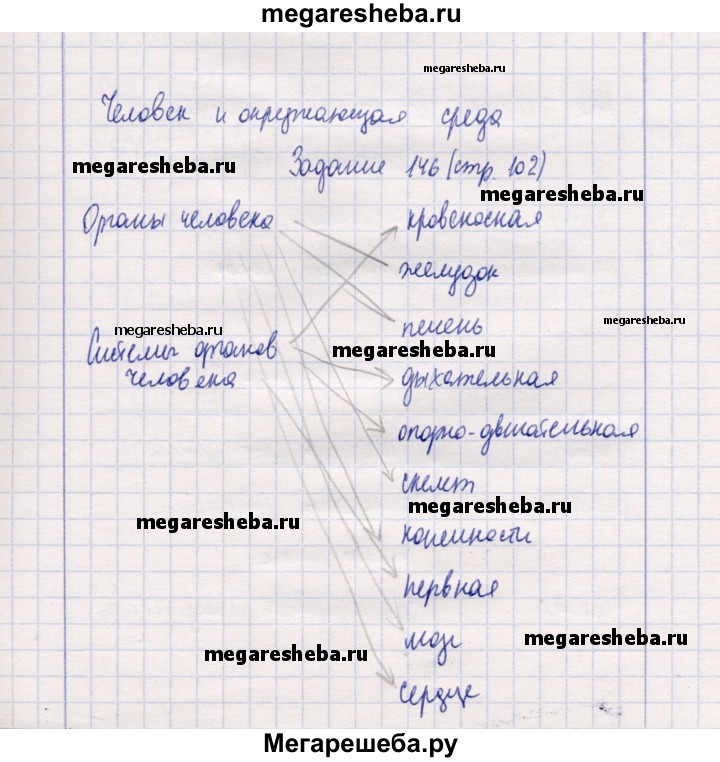 megaresheba.ru
megaresheba.ru
Человек и окружающая среда
Задание 146 (стр. 102)
megaresheba.ru
megaresheba.ru
Органы человека
кровеносная
желудок
печень
megaresheba.ru
megaresheba.ru
Системы органов
человека
megaresheba.ru
дыхательная
опорно-двигательная
скелет
megaresheba.ru
megaresheba.ru
конечности
нервная
мозг
megaresheba.ru
megaresheba.ru
сердце
Мегарешеба.ру